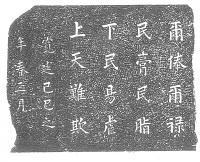 爾俸爾祿
民膏民脂
下民易虐
上天難欺
己巳之
年春三月